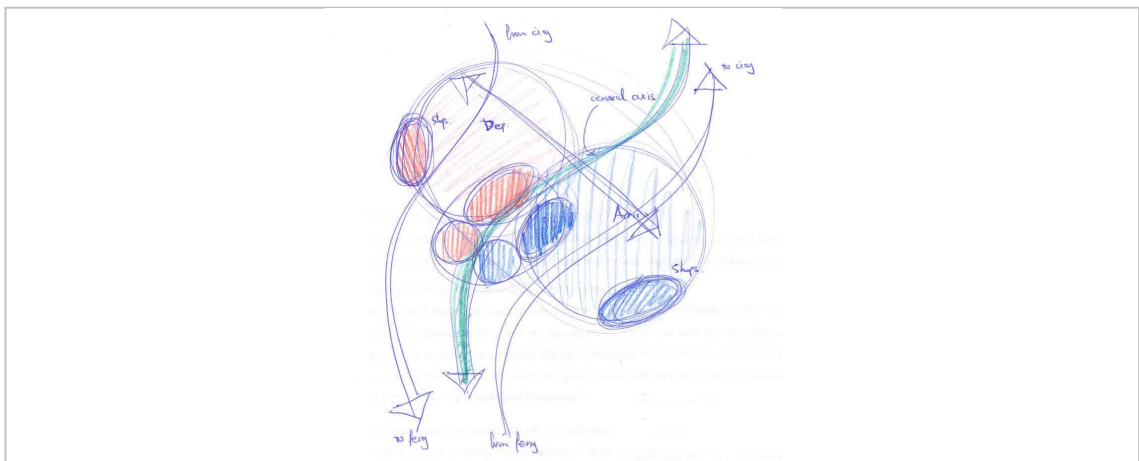 from city
to city
central axis
shps.
Dep.
Arriv.
shps.
to ferry
from ferry